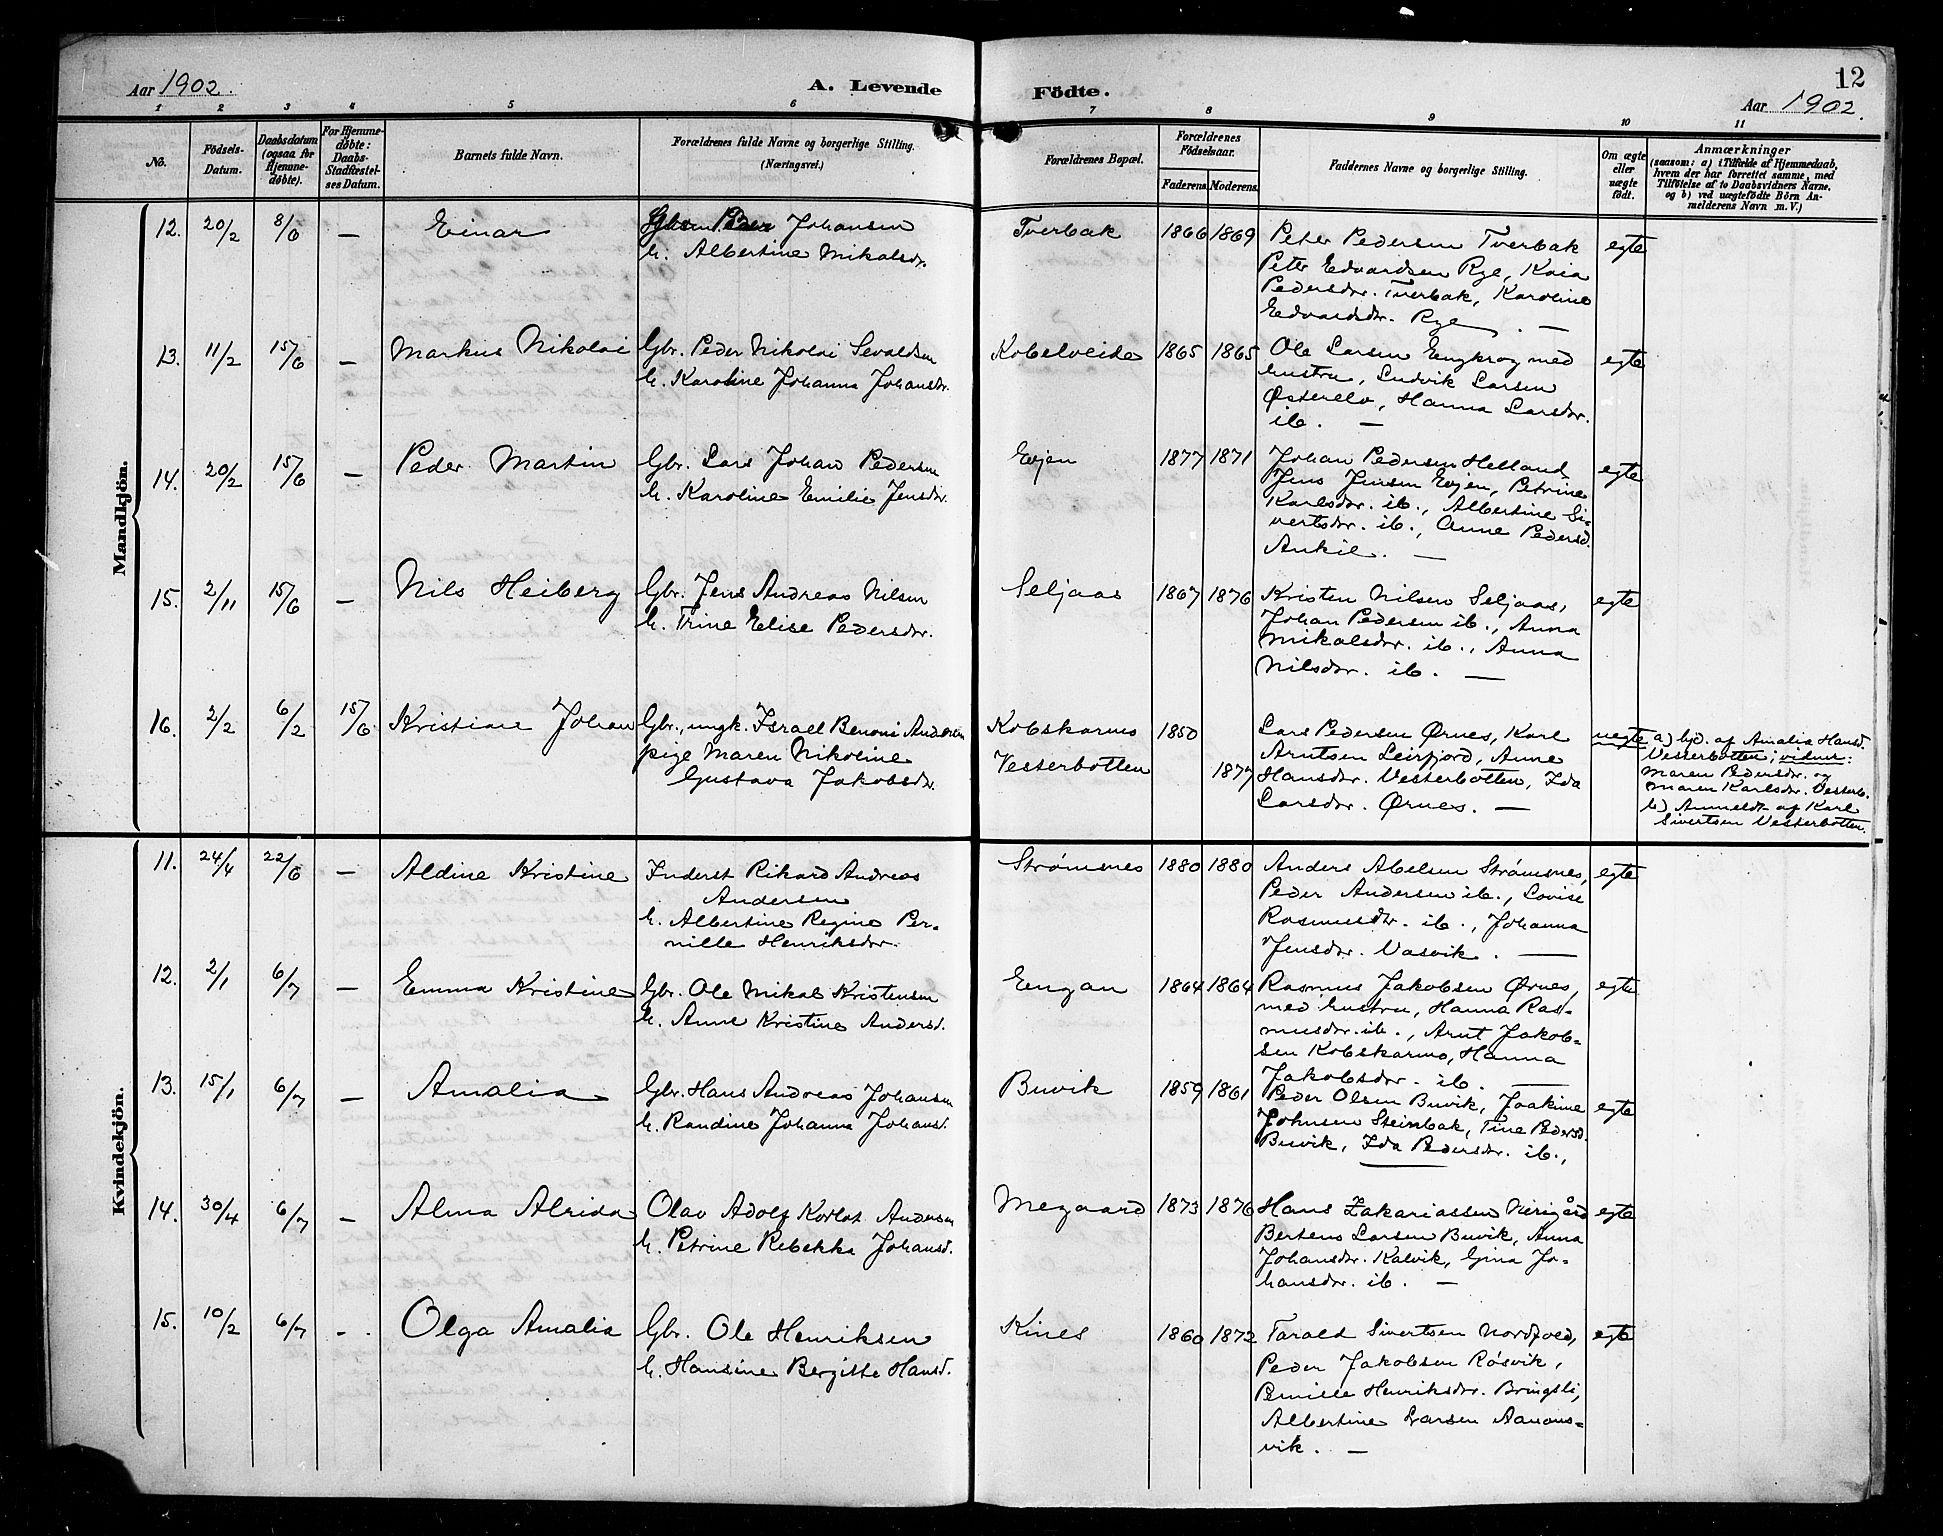 Aar 1902.
A. Levende Födte.
12
Aar 1902.
1 2 3 4 5 6 7 8 9 10 11
No.
Födsels-Datum.
Daabsdatum (ogsaa for Hjemme-döbte).
For Hjemme-døbte: Daabs-Stadfæstel-ses Datum.
Barnets fulde Navn.
Forældrenes fulde Navne og borgerlige Stilling.
(Næringsvei.)
Forældrenes Bopæl.
Forældrenes Fødselsaar.
Faderens. Moderens.
Faddernes Navne og borgerlige Stilling.
Om ægte eller uægte födt.
Anmærkninger
(saasom: a) i Tilfælde af Hjemmedaab,
hvem der har forrettet samme, med
Tilföielse af to Daabsvidners Navne.
og b) ved uægtefödte Börn An-
melderens Navn m.V.)
Mandkjön.
12. 20/2 8/6 — Einar
Johansen
h. Albertine Mikalsdr.
Tverbak 1866 1869
Peter Pedersen Tverbak
Peter Edvardsen Rye, Kaia
Pedersdr. Tverbak, Karoline
Edvardsdr. Rye. —
egte
13. 11/2 15/6 — Markus Nikolai
Gbr. Peder Nikolai Sevaldsen
h. Karoline Johanna Johansdr.
Kobelveide 1865 1865
Ole Larsen Engkrog med
hustru, Ludvik Larsen
Østerelv, Hanna Larsdr.
ib. —
egte
14. 20/2 15/6 — Peder Martin
Gbr. Lars Johan Pedersen
h. Karoline Emilie Jensdr.
Evjen 1877 1871
Johan Pedersen Helland
Jens Jensen Evjen, Petrine
Karlsdr. ib., Albertine Si-
vertsdr. ib., Anne Pedersd.
Ankil. —
egte
15. 2/11 15/6 — Nils Heiberg
Gbr. Jens Andreas Nilsen
h. Trine Elise Pedersdr.
Seljaas 1867 1876
Kristen Nilsen Seljaas,
Johan Pedersen ib., Anna
Mikalsdr. ib., Anna
Nilsdr. ib. —
egte
16. 2/2 6/2 15/6 Kristian Johan
Gbr., ungk. Israel Benoni Andersen
pige Maren Nikoline
Gustava Jakobsdr.
Kobskarmo 1850
Vesterbotten 1877
Lars Pedersen Ørnes, Karl
Arntsen Leirfjord, Anne
Hansdr. Vesterbotten, Ida
Larsdr. Ørnes. —
uegte
a) hjd. af Amalia Hansd.
Vesterbotten; vidner:
Maren Pedersdr. og
Maren Karlsdr. Vesterb.
b) Anmeldt af Karl
Sivertsen Vesterbotten.
Kvindekjön.
11. 24/4 22/6 — Aldine Kristine
Inderst Rikard Andreas
Andersen
h. Albertine Regine Per-
nille Henriksdr.
Strømsnes 1880 1880
Anders Abelsen Strømsnes,
Peder Andersen ib., Lovise
Rasmusdr. ib., Johanna
Jensdr. Vasvik. —
egte
12. 2/1 6/7 — Emma Kristine
Gbr. Ole Mikal Kristensen
h. Anne Kristine Andersd.
Engan 1864 1864
Rasmus Jakobsen Ørnes,
med hustru, Hanna Ras-
musdr. ib., Arnt Jakob-
sen Kobskarmo, Hanna
Jakobsdr. ib. —
egte
13. 15/1 6/7 — Amalia
Gbr. Hans Andreas Johansen
h. Randine Johanna Johansd.
Buvik 1859 1861
Peder Olsen Buvik, Joakime
Johnsen Steinbak, Tine Pedersd.
Buvik, Ida Pedersdr. ib.,
egte
14. 30/4 6/7 — Alma Alrida
Olav Adolf Andersen
h. Petrine Rebekka Johansd.
Megaard 1873 1876
Hans Zakariassen
Bertens Larsen Buvik, Anna
Johansdr. Kalvik, Gina Jo-
hansdr. ib. —
egte
15. 10/2 6/7 — Olga Amalia
Gbr. Ole Henriksen
h. Hansine Bergitte Hansd.
Kines 1860 1872
Tarald Sivertsen Nordfold,
Peder Jakobsen Røsvik,
Pernille Henriksdr. Bringsli,
Albertine Larsen Aanons-
vik. —
egte